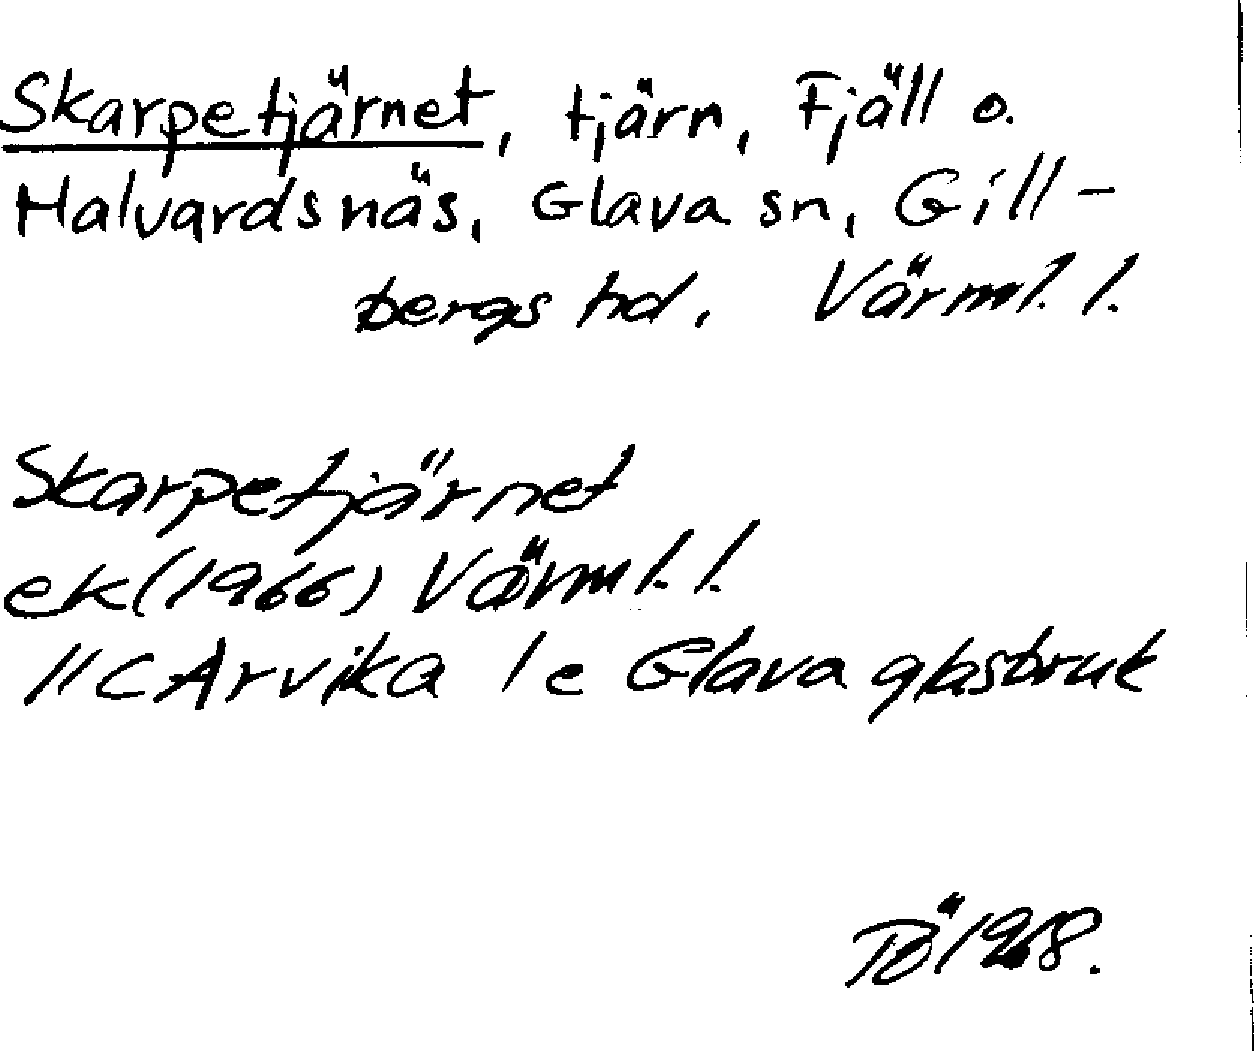 Skarpetjärnet, tjärn, Fjäll o.
Halvardsnäs, Glava sn, Gill-
bergs hd. Värml. l.
Skarpetjärnet
ek (1966) Värml. l.
11C Arvika 1e Glava glasbruk
TÖ 1968.